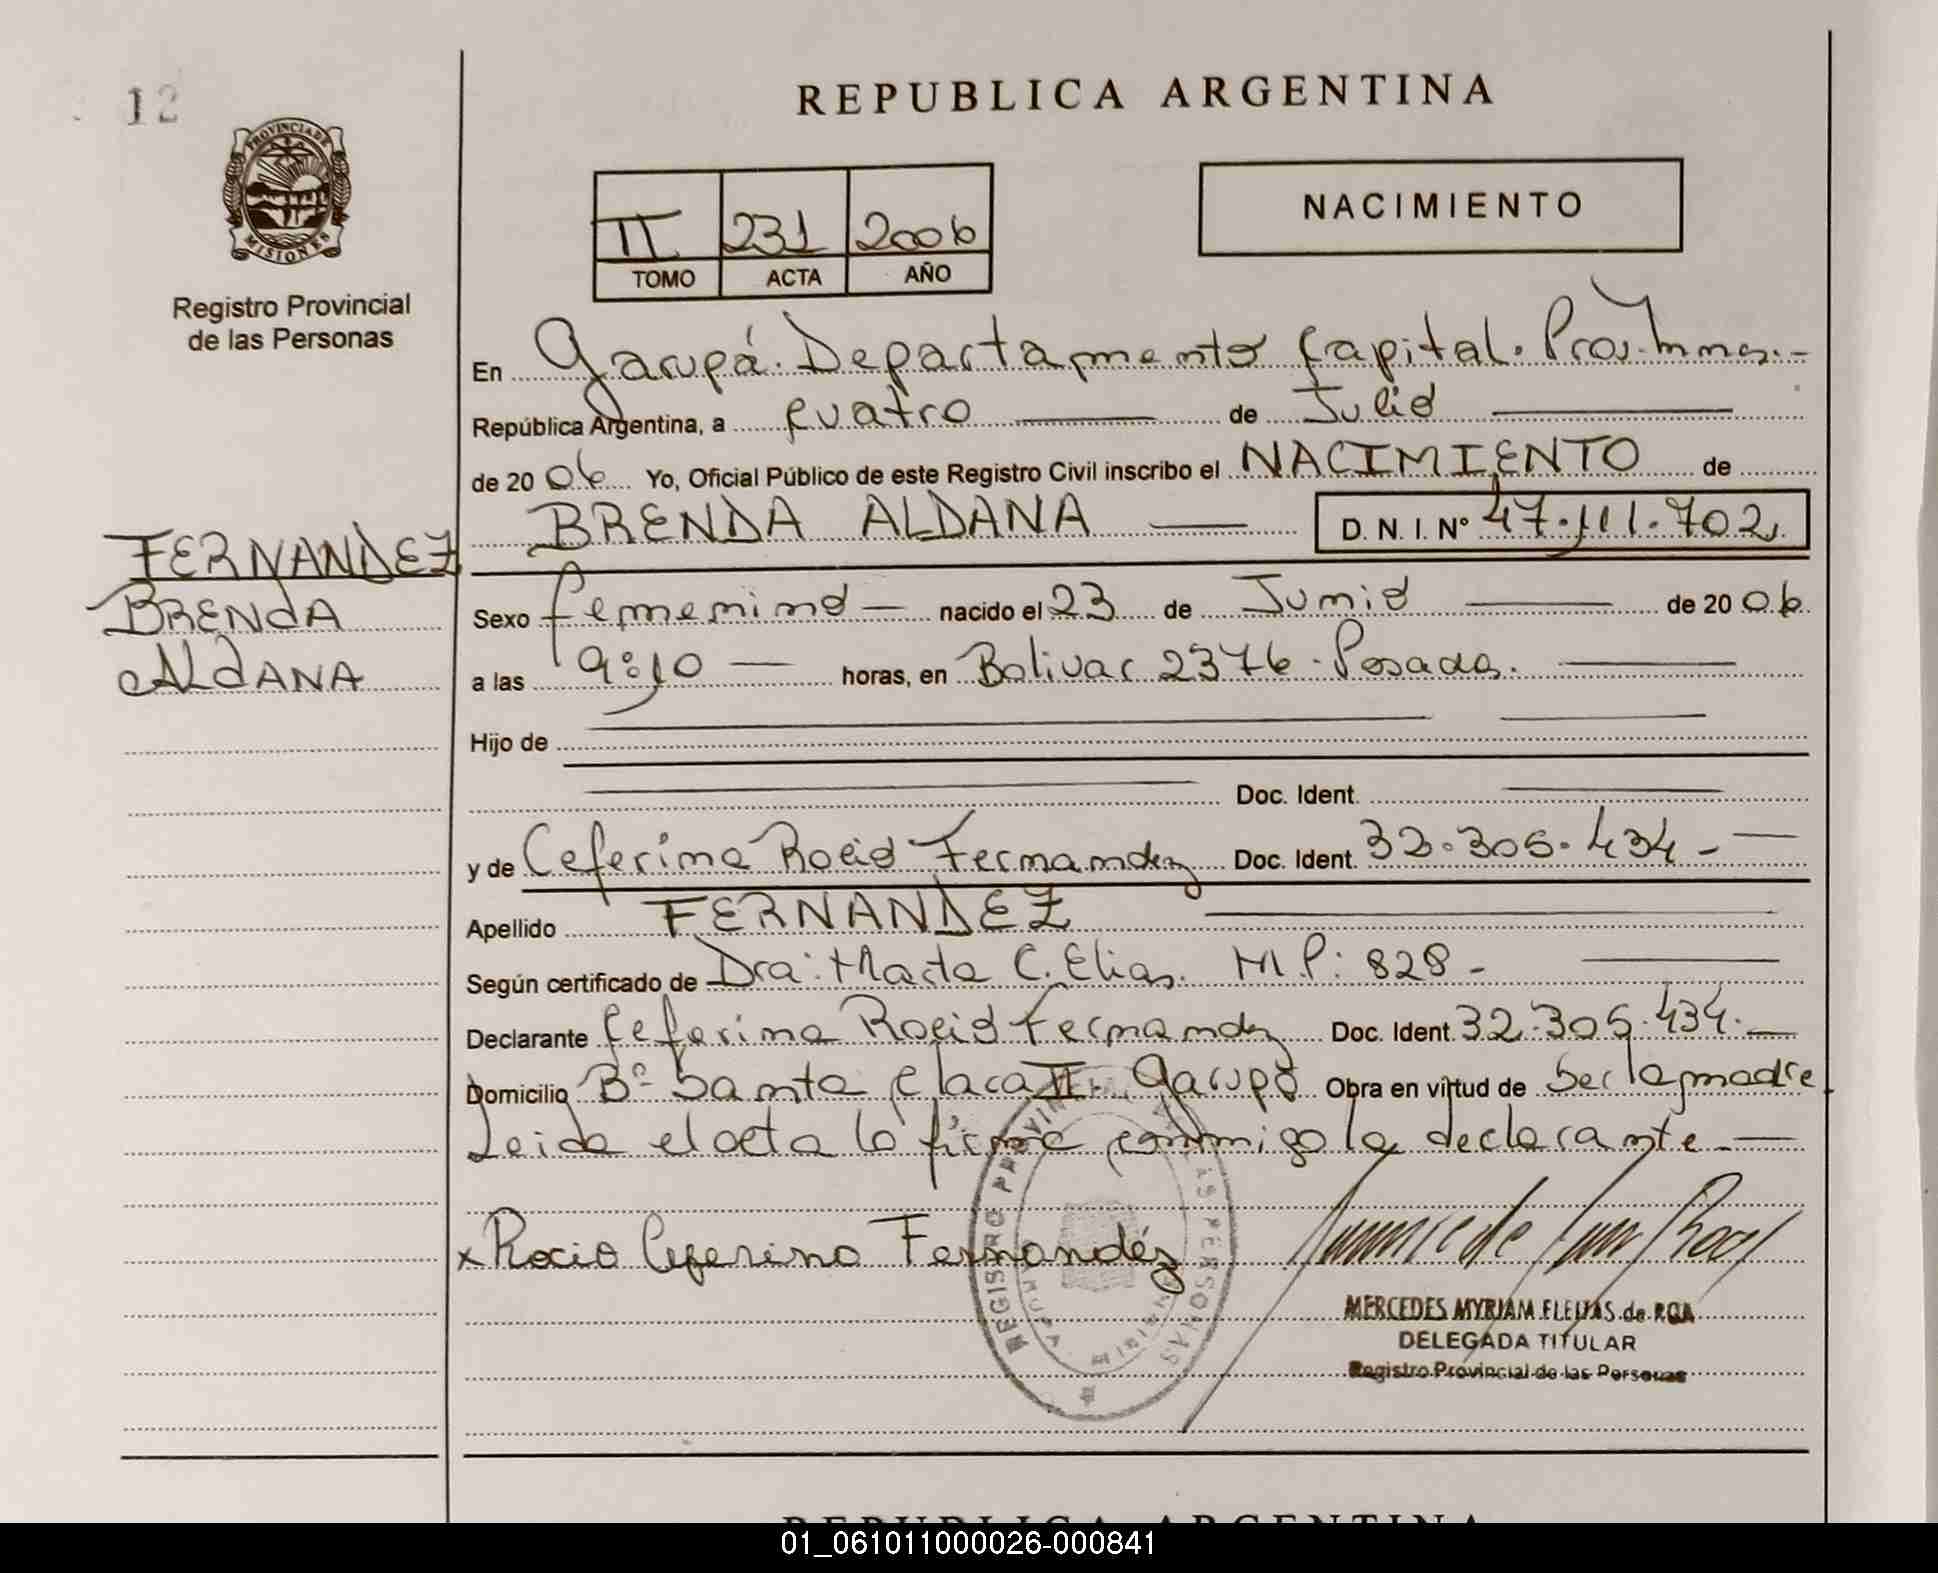 12
REPUBLICA ARGENTINA
PROVINCIA DE
MISIONES
Registro Provincial
de las Personas
II 231 2006
TOMO ACTA AÑO
NACIMIENTO
En Garupá. Departamento Capital. Prov. Mnes.-
República Argentina, a cuatro de Julio
de 2006 Yo, Oficial Público de este Registro Civil inscribo el NACIMIENTO de
BRENDA ALDANA D. N. I. N° 47.111.702
FERNANDEZ
BRENDA
ALDANA
Sexo femenino nacido el 23 de Junio de 2006
a las 9:10 horas, en Bolivar 2376. Posadas.
Hijo de
Doc. Ident.
y de Ceferina Rocio Fernandez Doc. Ident. 32.305.434-
Apellido FERNANDEZ
Según certificado de Dra: Marta C. Elias. M.P: 828-
Declarante Ceferina Rocio Fernandez Doc. Ident. 32.305.434.
Domicilio B° Santa Clara II. Garupá Obra en virtud de Ser la madre.
Leida el acta la firma conmigo la declarante
x Rocio Ceferina Fernandéz
REGISTRO PROVINCIAL DE LAS PERSONAS
MERCEDES MYRIAM FLEITAS de ROA
DELEGADA TITULAR
Registro Provincial de las Personas
REPUBLICA ARGENTINA
01_061011000026-000841